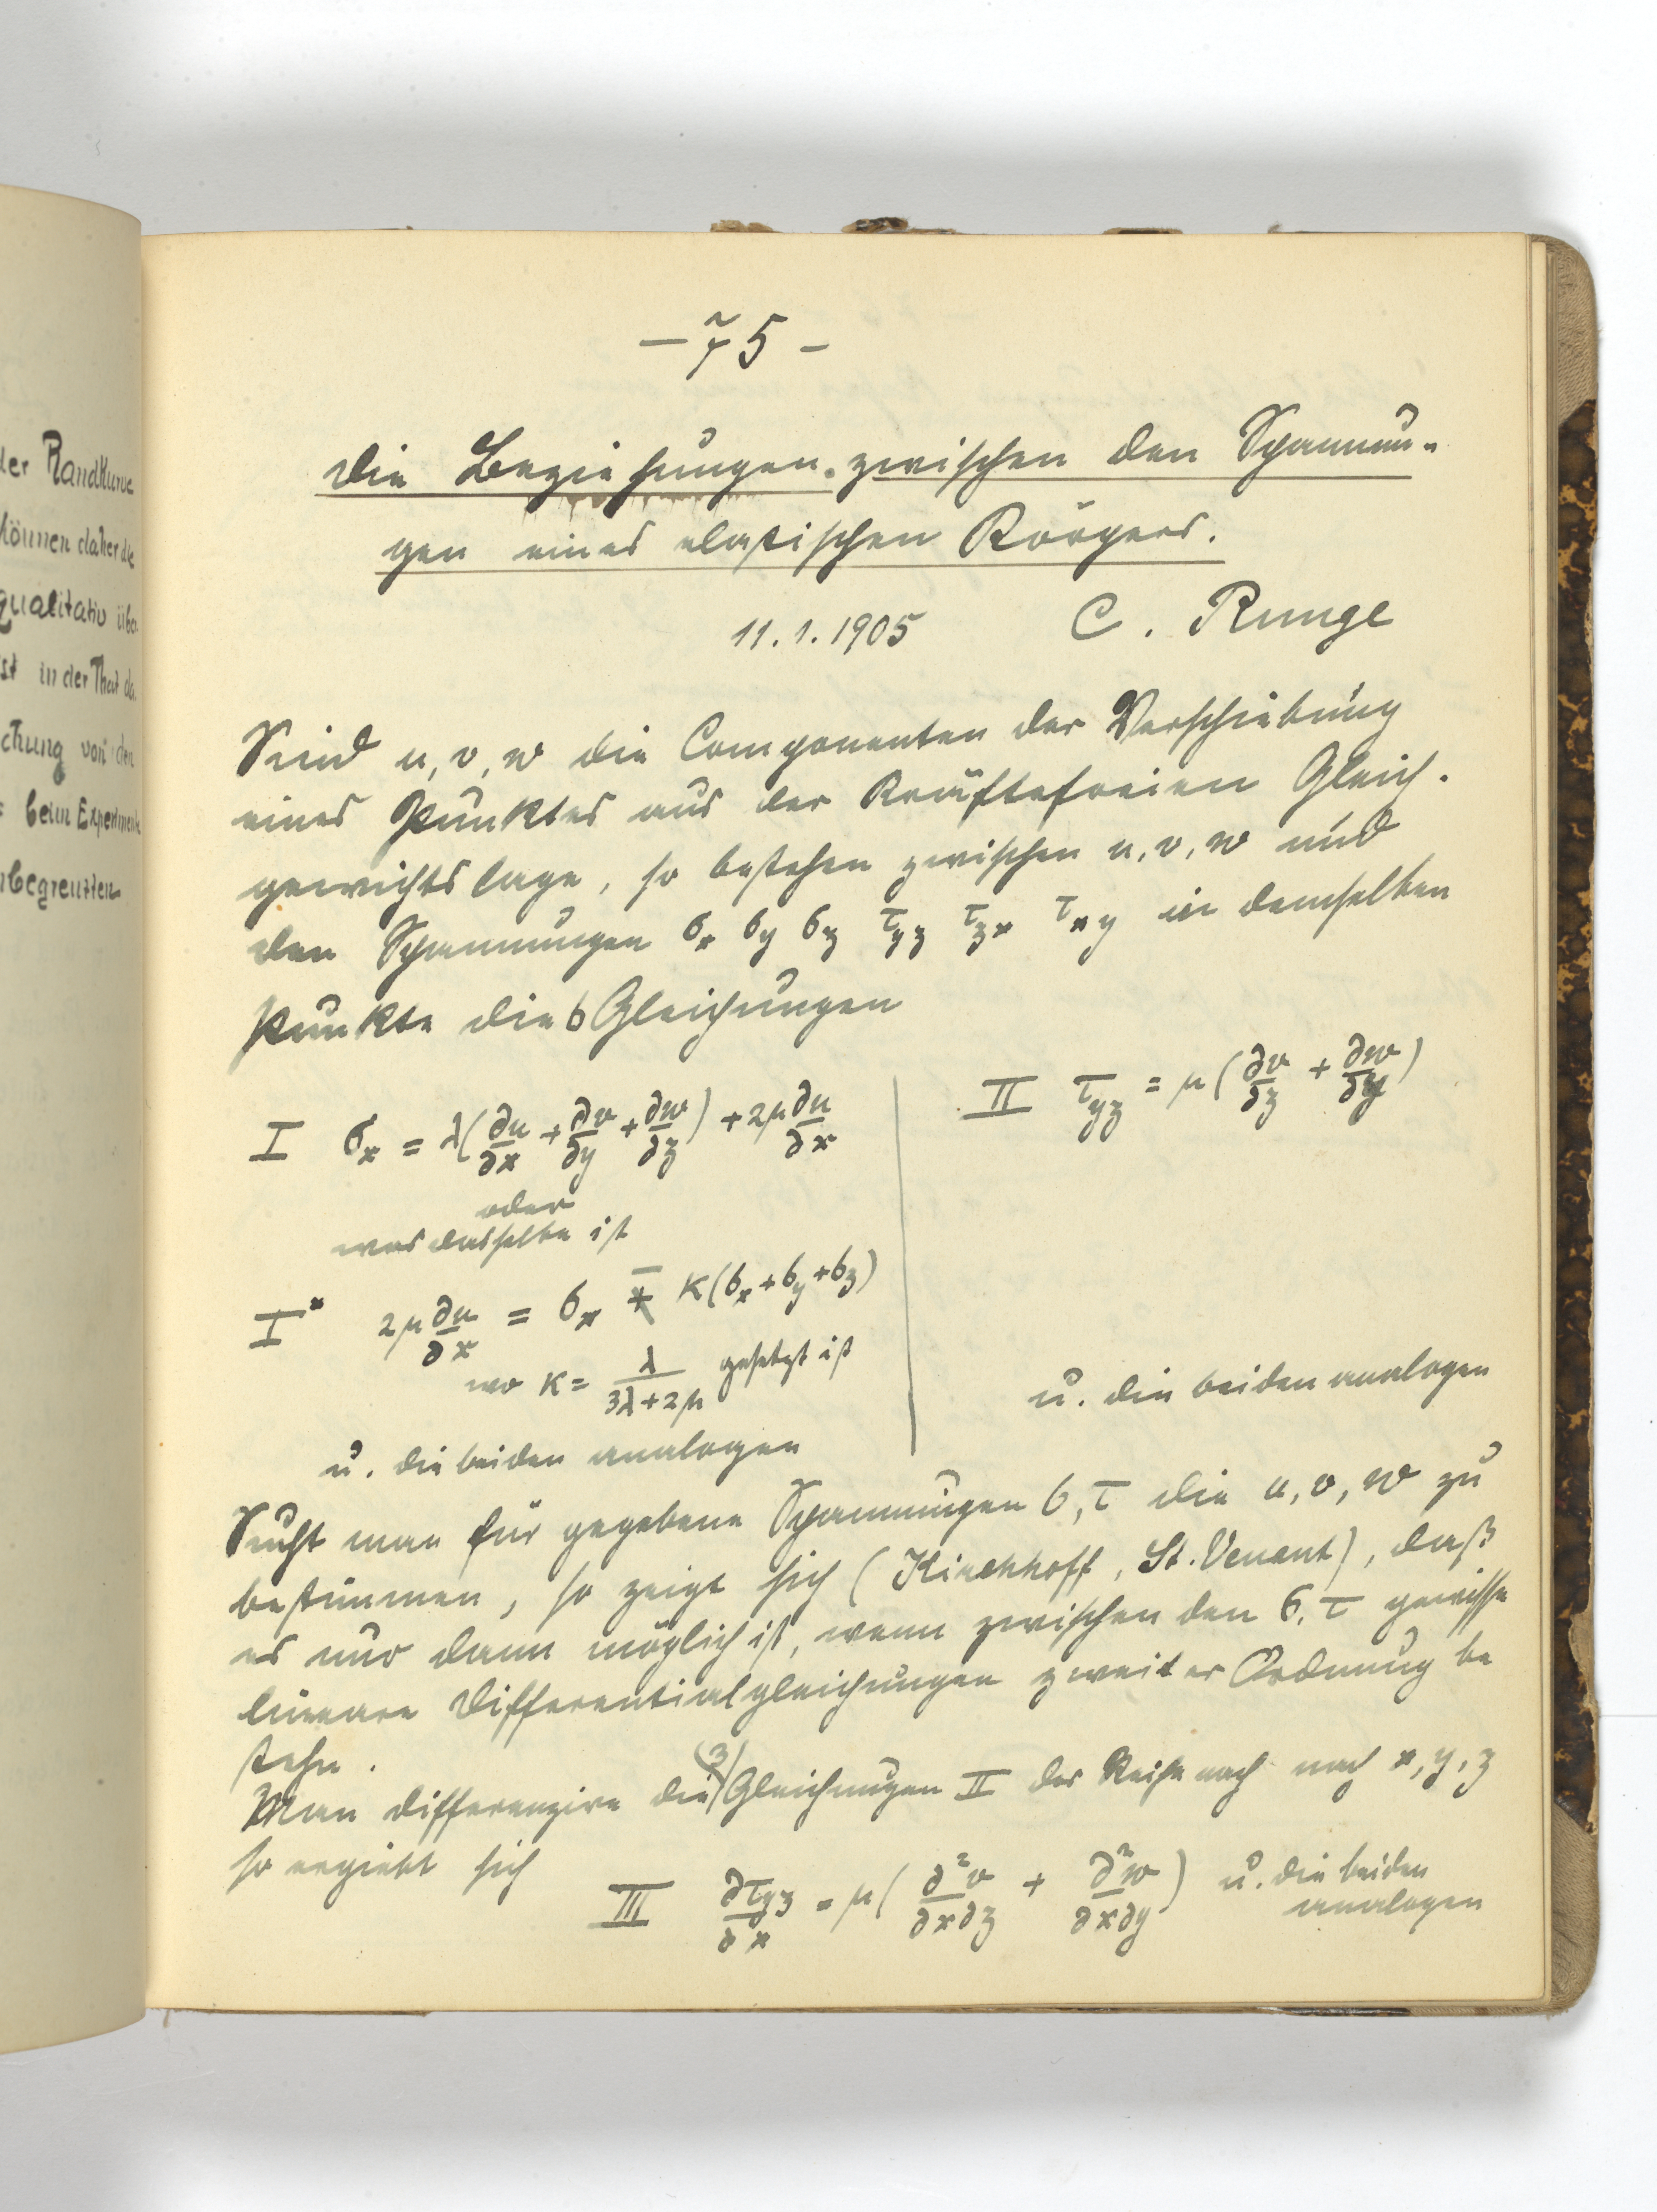 der Randkurve
können daher die
qualitativ über
ist in der That da
chung von den
beim Experimente
begrenzten
– 75 –
Die Beziehungen zwischen den Spannun-
gen eines elastischen Körpers.
11.1.1905 C. Runge
Sind u, v, w die Componenten der Verschiebung
eines Punktes aus der Kräftefreien Gleich-
gewichtslage, so bestehen zwischen u, v, w und
den Spannungen σ_x σ_y σ_z τ_yz τ_zx τ_xy in demselben
Punkte die 6 Gleichungen
I σ_x = λ(∂u/∂x + ∂v/∂y + ∂w/∂z) + 2μ ∂u/∂x
oder
was dasselbe ist
I* 2μ ∂u/∂x = σ_x − K(σ_x + σ_y + σ_z)
wo K = λ/(3λ+2μ) gesetzt ist
u. die beiden analogen
II τ_yz = μ(∂v/∂z + ∂w/∂y)
u. die beiden analogen
Sucht man für gegebene Spannungen σ, τ die u, v, w zu
bestimmen, so zeigt sich (Kirchhoff, St. Venant), daß
es nur dann möglich ist, wenn zwischen den σ, τ gewisse
lineare Differentialgleichungen zweiter Ordnung be
stehn.
Man differenzire die (3) Gleichungen II der Reihe nach nach x, y, z
so ergiebt sich
III ∂τ_yz/∂x = μ(∂²v/∂x∂z + ∂²w/∂x∂y) u. die beiden
analogen